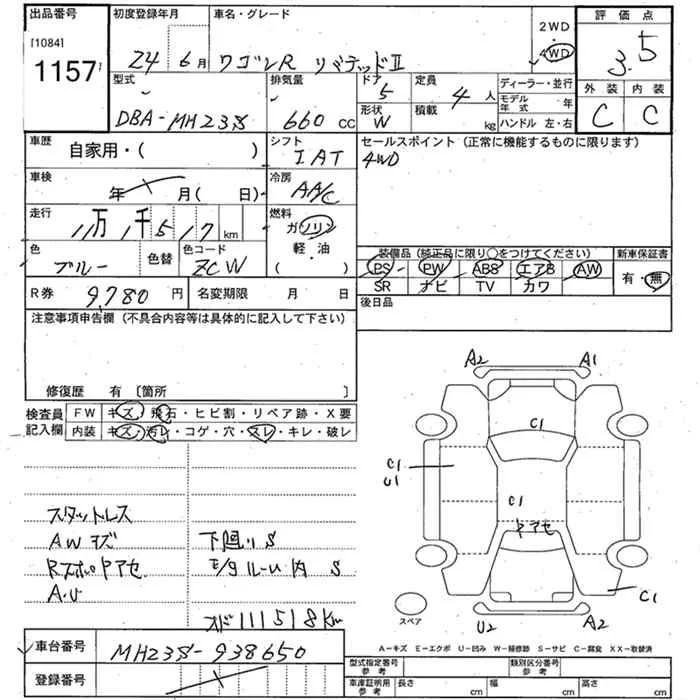 出品番号 初度登録年月 車名・グレード 評価点
[1084] 2WD 4WD
1157 24 6月 ワゴンR リミテッドII 3.5
型式 排気量 ドア 5 定員 4人 ディーラー・並行 外装 内装
DBA-MH23S 660cc 形状 W 積載 kg モデル年式 年 C C
ハンドル 左・右
車歴 自家用・( ) シフト IAT セールスポイント(正常に機能するものに限ります)
4WD
車検 年 月( 日) 冷房 AA/C
走行 11万1千517km 燃料 ガソリン
軽・油
( )
色 ブルー 色替 色コード ZCW
装備品(純正品に限り○をつけてください) 新車保証書
PS PW ABS エアB AW 有・無
SR ナビ TV カワ
R券 9,780円 名変期限 月 日 後日品
注意事項申告欄(不具合内容等は具体的に記入して下さい)
修復歴 有 〔箇所 〕
検査員 FW キズ・飛石・ヒビ割・リペア跡・X要
記入欄 内装 キズ・汚レ・コゲ・穴・スレ・キレ・破レ
A2 A1
C1
C1
U1
C1
トアセ
C1
U2 A2
スペア
スタットレス
AWキズ 下廻りS
Rスポトアセ E/gルーム内S
A.U
オド111518Km
A-キズ E-エクボ U-凹み W-補修跡 S-サビ C-腐食 XX-取替済
車台番号 MH23S-938650
登録番号
型式指定番号 参考 類別区分番号 参考
車庫証明用 参考 長さ cm 幅 cm 高さ cm